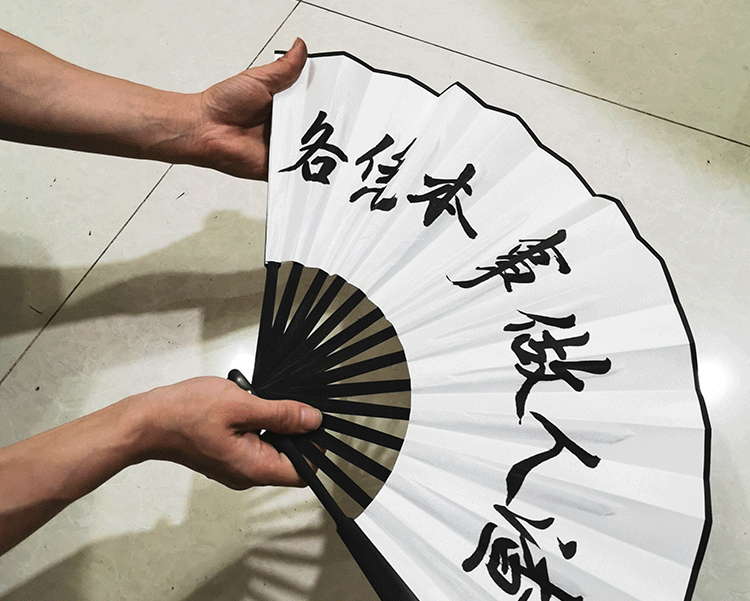 各凭本事做人渣